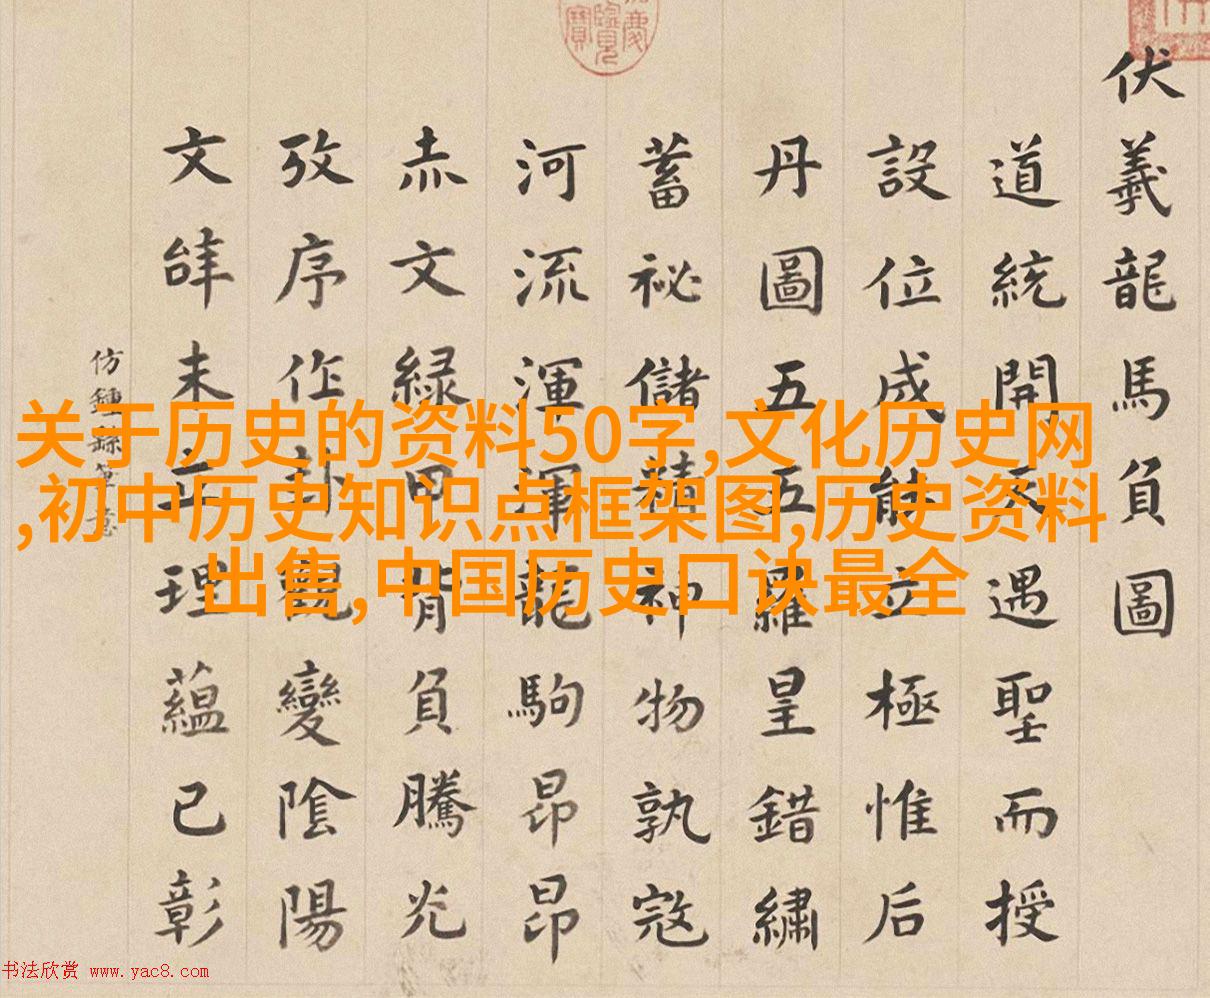 关于历史的资料50字,文化历史网
,初中历史知识点框架图,历史资料
出售,中国历史口诀最全
伏羲龍馬負圖
道統開天遇聖而授
設位成能立極惟后
丹圖五五羅皇錯繡
蓄祕儲精神物孰寇
河流渾渾龍駒昂昂
赤文緑甲背負騰光
攷序作卦觀變陰陽
文未立理蘊已彰
仿鍾繇筆意
慶覽寶
书法欣赏 www.yac8.com